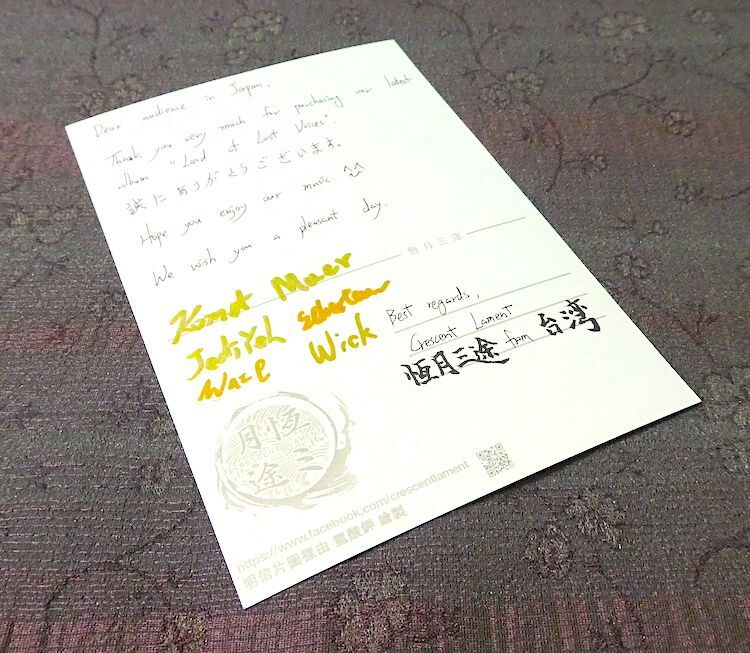 Dear audience in Japan,
Thank you very much for purchasing our latest
album "Land of Lost Voices".
誠にありがとうございます。
Hope you enjoy our music ^^
We wish you a pleasant day.
恒月三途
Komet Muer
Jedi Yeh
Wick
Best regards,
Crescent Lament
恒月三途 from 台灣
恒月三途
https://www.facebook.com/crescentlament
明信片圖樣由 氰酸鉀 繪製